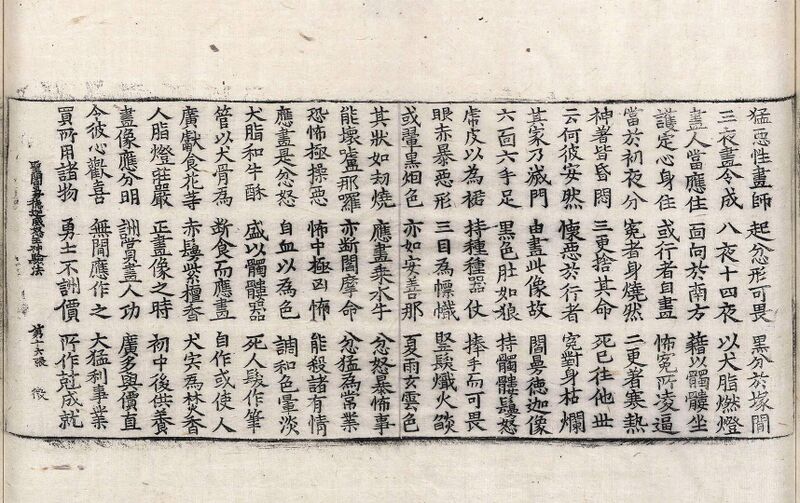 猛惡性畫師 起忿形可畏 黑分於塚間
三夜畫令成 八夜十四夜 以犬脂燃燈
畫人當應住 面向於南方 藉以髑髏坐
護定心身住 或行者自畫 怖寃所凌逼
當於初夜分 寃者身燒然 二更著寒熱
神著皆昏悶 三更捨其命 死已往他世
云何彼安然 懷惡於行者 寃對身枯爛
其家乃滅門 由畫此像故 閻曼德迦像
六面六手足 黑色肚如狼 持髑髏鬘怒
虎皮以為裙 持種種器仗 捧手而可畏
眼赤暴惡形 三目為幖幟 竪髮熾火焰
或翬黑烟色 亦如安善那 夏雨玄雲色
其狀如劫燒 應畫乘水牛 忿怒暴怖事
能壞嚧那羅 亦斷閻摩命 忿猛為常業
恐怖極操惡 怖中極凶怖 能殺諸有情
應畫是忿怒 自血以為色 調和色暈淡
犬脂和牛酥 盛以髑髏器 死人髮作筆
管以犬骨為 斷食而應畫 自作或使人
廣獻食花等 赤鬘紫檀香 犬宍為焚香
人脂燈莊嚴 正畫像之時 初中後供養
畫像應分明 詶賞畫人功 廣多與價直
令彼心歡喜 無間應作之 大猛利事業
買所用諸物 勇士不詶價 所作㝵成就
閻曼德迦威怒王神驗法 第十六張